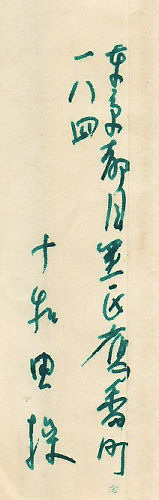 東京都目黒区鷹番町
一八四
十和田操